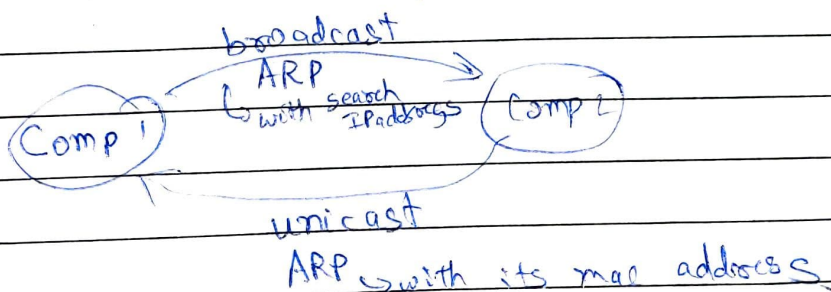 broadcast
ARP
with search
IPaddress
Comp 1
Comp 2
unicast
ARP with its mac address